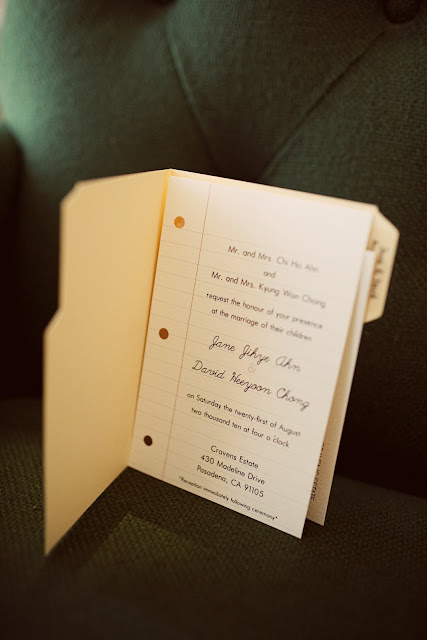 Mr. and Mrs. Chi Ho Ahn
and
Mr. and Mrs. Kyung Wan Chong
request the honour of your presence
at the marriage of their children
Jane Jihye Ahn
&
David Heeyoon Chong
on Saturday the twenty-first of August
two thousand ten at four o'clock
Cravens Estate
430 Madeline Drive
Pasadena, CA 91105
*Reception immediately following ceremony*